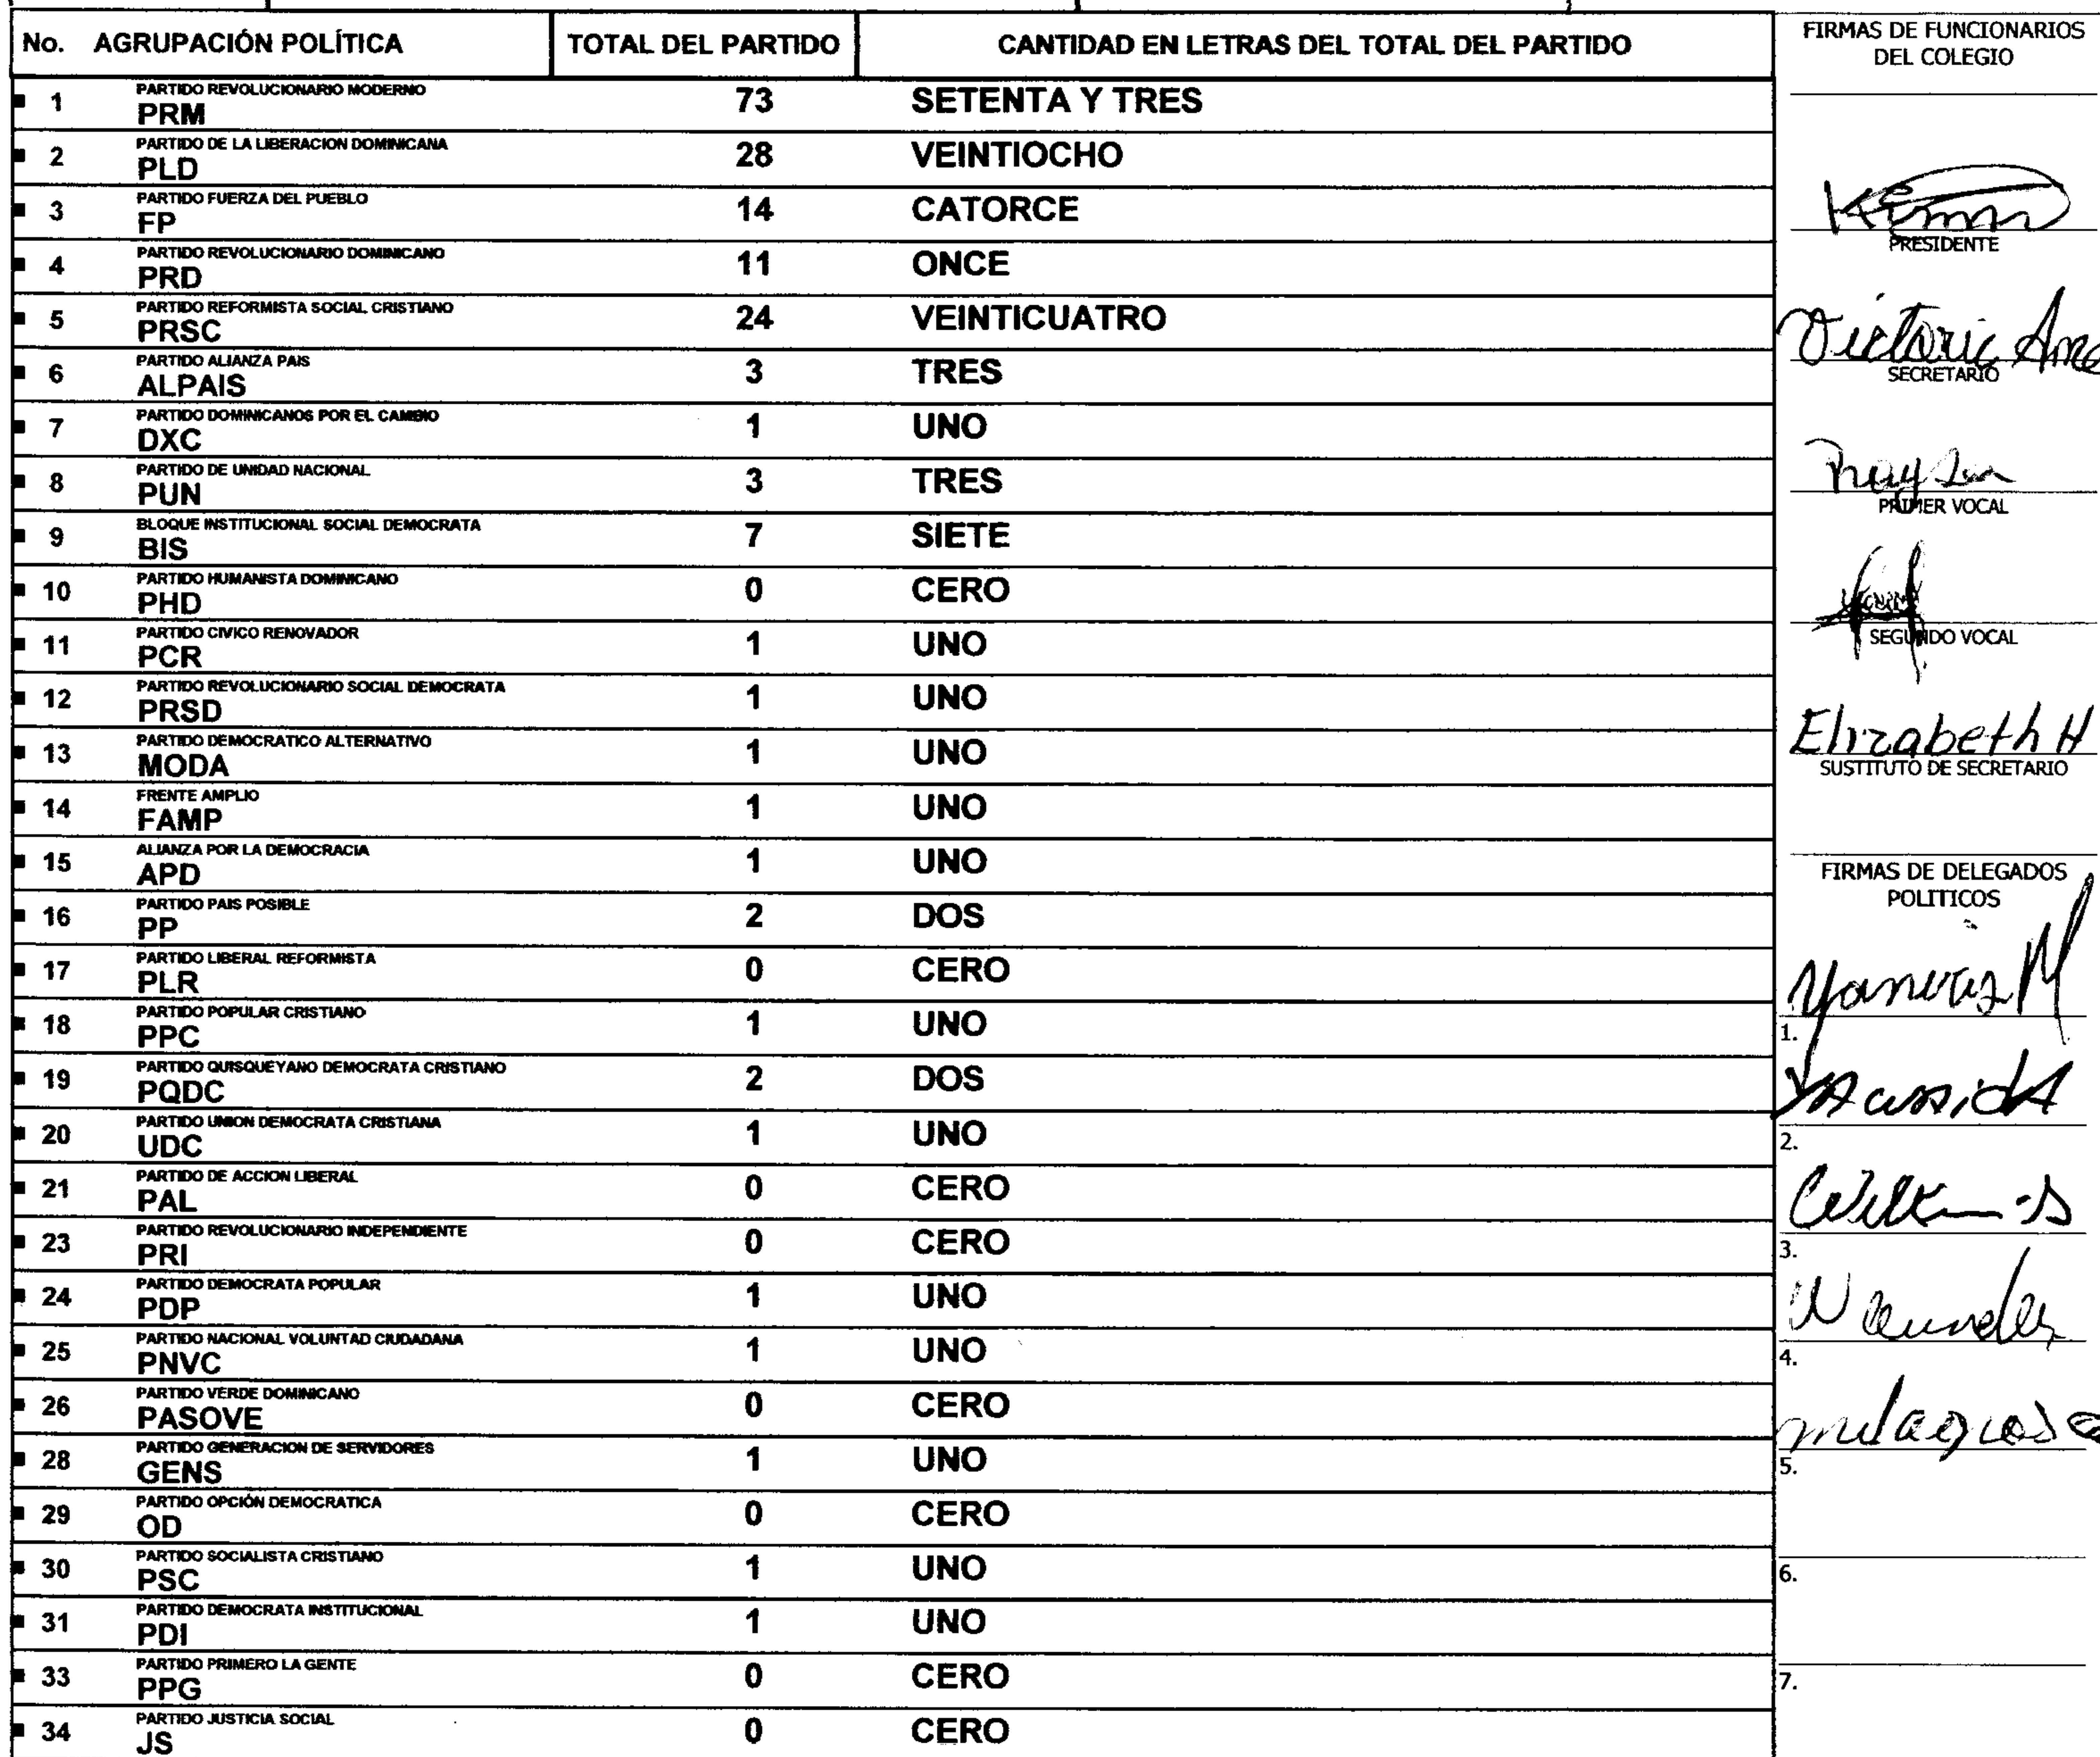 No. AGRUPACIÓN POLÍTICA TOTAL DEL PARTIDO CANTIDAD EN LETRAS DEL TOTAL DEL PARTIDO
PARTIDO REVOLUCIONARIO MODERNO
1 PRM 73 SETENTA Y TRES
PARTIDO DE LA LIBERACION DOMINICANA
2 PLD 28 VEINTIOCHO
PARTIDO FUERZA DEL PUEBLO
3 FP 14 CATORCE
PARTIDO REVOLUCIONARIO DOMINICANO
4 PRD 11 ONCE
PARTIDO REFORMISTA SOCIAL CRISTIANO
5 PRSC 24 VEINTICUATRO
PARTIDO ALIANZA PAIS
6 ALPAIS 3 TRES
PARTIDO DOMINICANOS POR EL CAMBIO
7 DXC 1 UNO
PARTIDO DE UNIDAD NACIONAL
8 PUN 3 TRES
BLOQUE INSTITUCIONAL SOCIAL DEMOCRATA
9 BIS 7 SIETE
PARTIDO HUMANISTA DOMINICANO
10 PHD 0 CERO
PARTIDO CIVICO RENOVADOR
11 PCR 1 UNO
PARTIDO REVOLUCIONARIO SOCIAL DEMOCRATA
12 PRSD 1 UNO
PARTIDO DEMOCRATICO ALTERNATIVO
13 MODA 1 UNO
FRENTE AMPLIO
14 FAMP 1 UNO
ALIANZA POR LA DEMOCRACIA
15 APD 1 UNO
PARTIDO PAIS POSIBLE
16 PP 2 DOS
PARTIDO LIBERAL REFORMISTA
17 PLR 0 CERO
PARTIDO POPULAR CRISTIANO
18 PPC 1 UNO
PARTIDO QUISQUEYANO DEMOCRATA CRISTIANO
19 PQDC 2 DOS
PARTIDO UNION DEMOCRATA CRISTIANA
20 UDC 1 UNO
PARTIDO DE ACCION LIBERAL
21 PAL 0 CERO
PARTIDO REVOLUCIONARIO INDEPENDIENTE
23 PRI 0 CERO
PARTIDO DEMOCRATA POPULAR
24 PDP 1 UNO
PARTIDO NACIONAL VOLUNTAD CIUDADANA
25 PNVC 1 UNO
PARTIDO VERDE DOMINICANO
26 PASOVE 0 CERO
PARTIDO GENERACION DE SERVIDORES
28 GENS 1 UNO
PARTIDO OPCIÓN DEMOCRATICA
29 OD 0 CERO
PARTIDO SOCIALISTA CRISTIANO
30 PSC 1 UNO
PARTIDO DEMOCRATA INSTITUCIONAL
31 PDI 1 UNO
PARTIDO PRIMERO LA GENTE
33 PPG 0 CERO
PARTIDO JUSTICIA SOCIAL
34 JS 0 CERO
FIRMAS DE FUNCIONARIOS
DEL COLEGIO
PRESIDENTE
SECRETARIO
PRIMER VOCAL
SEGUNDO VOCAL
Elizabeth H
SUSTITUTO DE SECRETARIO
FIRMAS DE DELEGADOS
POLITICOS
1.
2.
3.
4.
5.
6.
7.